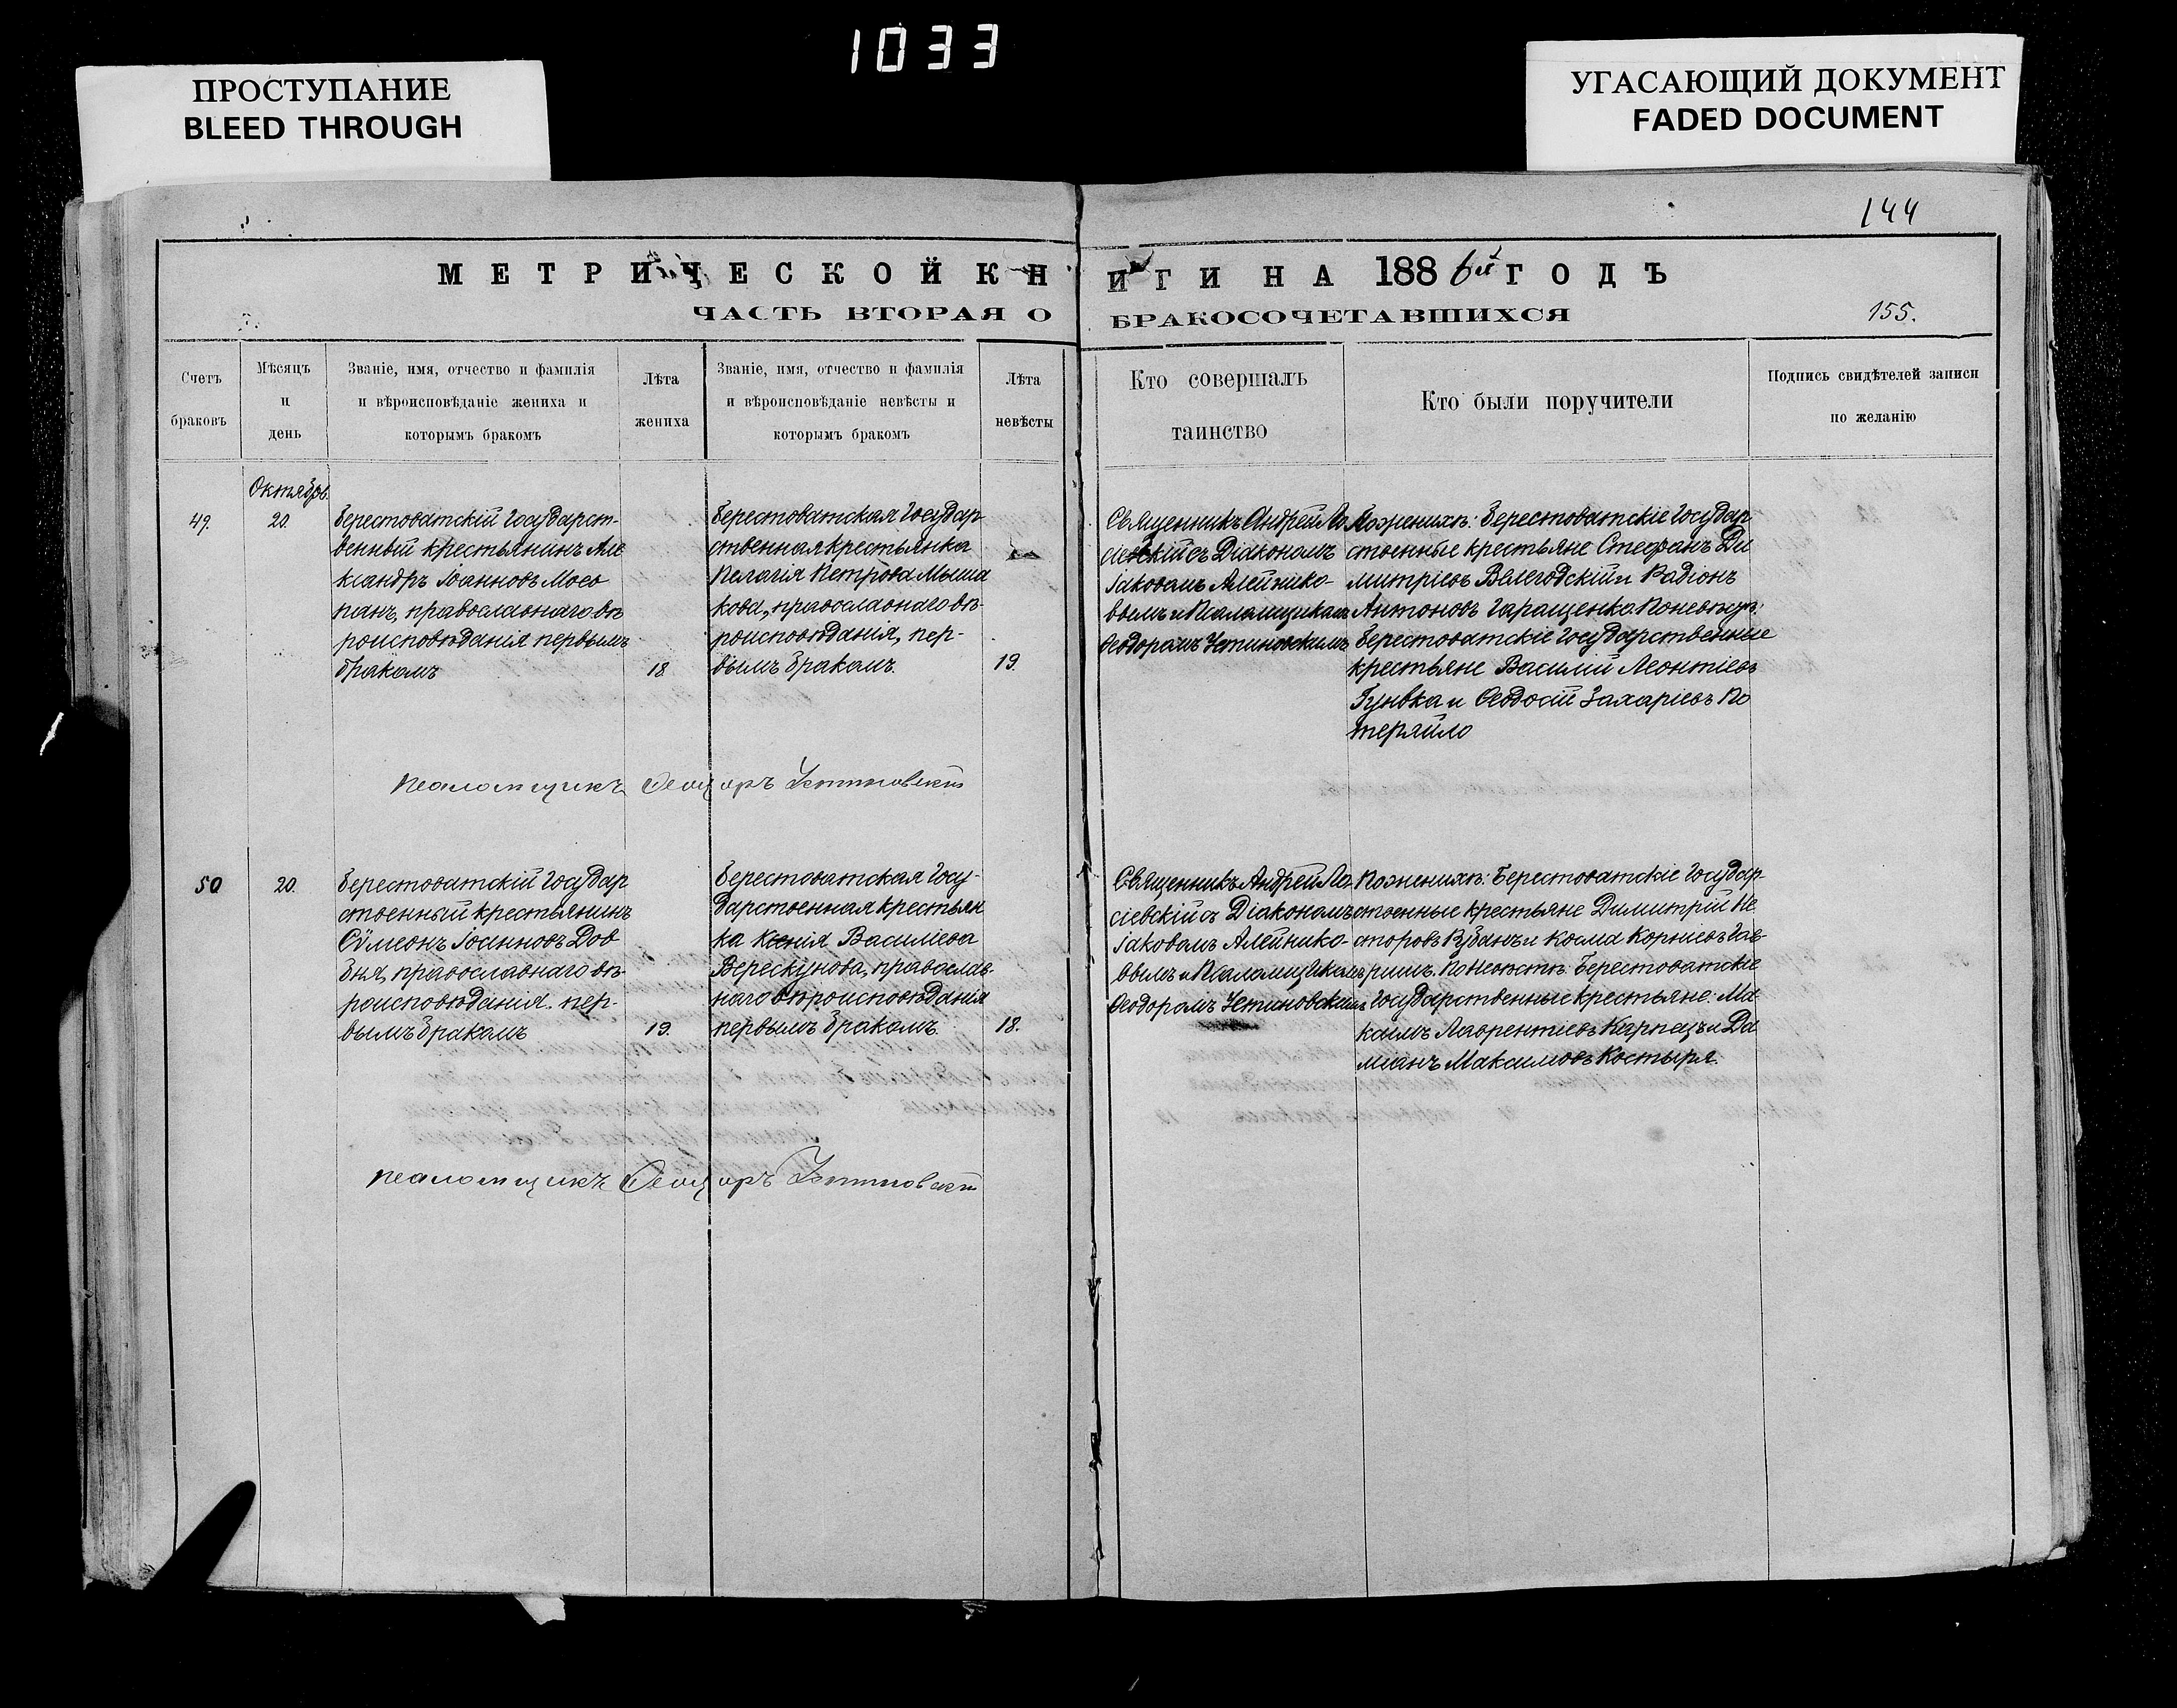 1033
ПРОСТУПАНИЕ
BLEED THROUGH
УГАСАЮЩИЙ ДОКУМЕНТ
FADED DOCUMENT
144
МЕТРИЧЕСКОЙ КНИГИ НА 1886й ГОДЪ
ЧАСТЬ ВТОРАЯ О БРАКОСОЧЕТАВШИХСЯ
155.
Счетъ
браковъ
Мѣсяцъ
и
день
Званіе, имя, отчество и фамилія
и вѣроисповѣданіе жениха и
которымъ бракомъ
Лѣта
жениха
Званіе, имя, отчество и фамилія
и вѣроисповѣданіе невѣсты и
которымъ бракомъ
Лѣта
невѣсты
Кто совершалъ
таинство
Кто были поручители
Подпись свидѣтелей записи
по желанію
49.
Октябрь
20.
Берестоватскій Государст-
венный крестьянинъ Але
ксандръ Іоанновъ Мосо
панъ, православнаго вѣ
роисповѣданія первымъ
бракомъ
18
Берестоватская Государ
ственная крестьянка
Пелагія Петрова Мыша
кова, православнаго вѣ-
роисповѣданія, пер-
вымъ бракомъ.
19.
Священникъ Андрей Ло
сіевскій съ Діакономъ
Іаковомъ Алейнико-
вымъ и Псаломщикомъ
Ѳеодоромъ Устиновскимъ
По женихѣ: Берестоватскіе Государ
ственные крестьяне Стефанъ Ди
митріевъ Велегодскій и Родіонъ
Антоновъ Гаращенко. По невѣстѣ:
Берестоватскіе Государственные
крестьяне Василій Леонтіевъ
Гунвка и Ѳеодосій Захаріевъ По
теряйло
Псаломщикъ Ѳеодоръ Устиновскій
50
20.
Берестоватскій Государ
ственный крестьянинъ
Сѵмеонъ Іоанновъ Дов
бня, православнаго вѣ-
роисповѣданія пер-
вымъ бракомъ
19.
Берестоватская Госу-
дарственная крестьян
ка Ксенія Василіева
Верескунова, православ-
наго вѣроисповѣданія
первымъ бракомъ
18.
Священникъ Андрей Ло-
сіевскій съ Діакономъ
Іаковомъ Алейнико-
вымъ и Псаломщикомъ
Ѳеодоромъ Устиновскимъ
По женихѣ: Берестоватскіе Государ-
ственные крестьяне Димитрій Не
сторовъ Кубанъ и Косма Корніевъ Гав-
ришъ. По невѣстѣ: Берестоватскіе
Государственные крестьяне: Ма
ксимъ Лаврентіевъ Карпецъ и Да
міанъ Максимовъ Костыря.
Псаломщикъ Ѳеодоръ Устиновскій